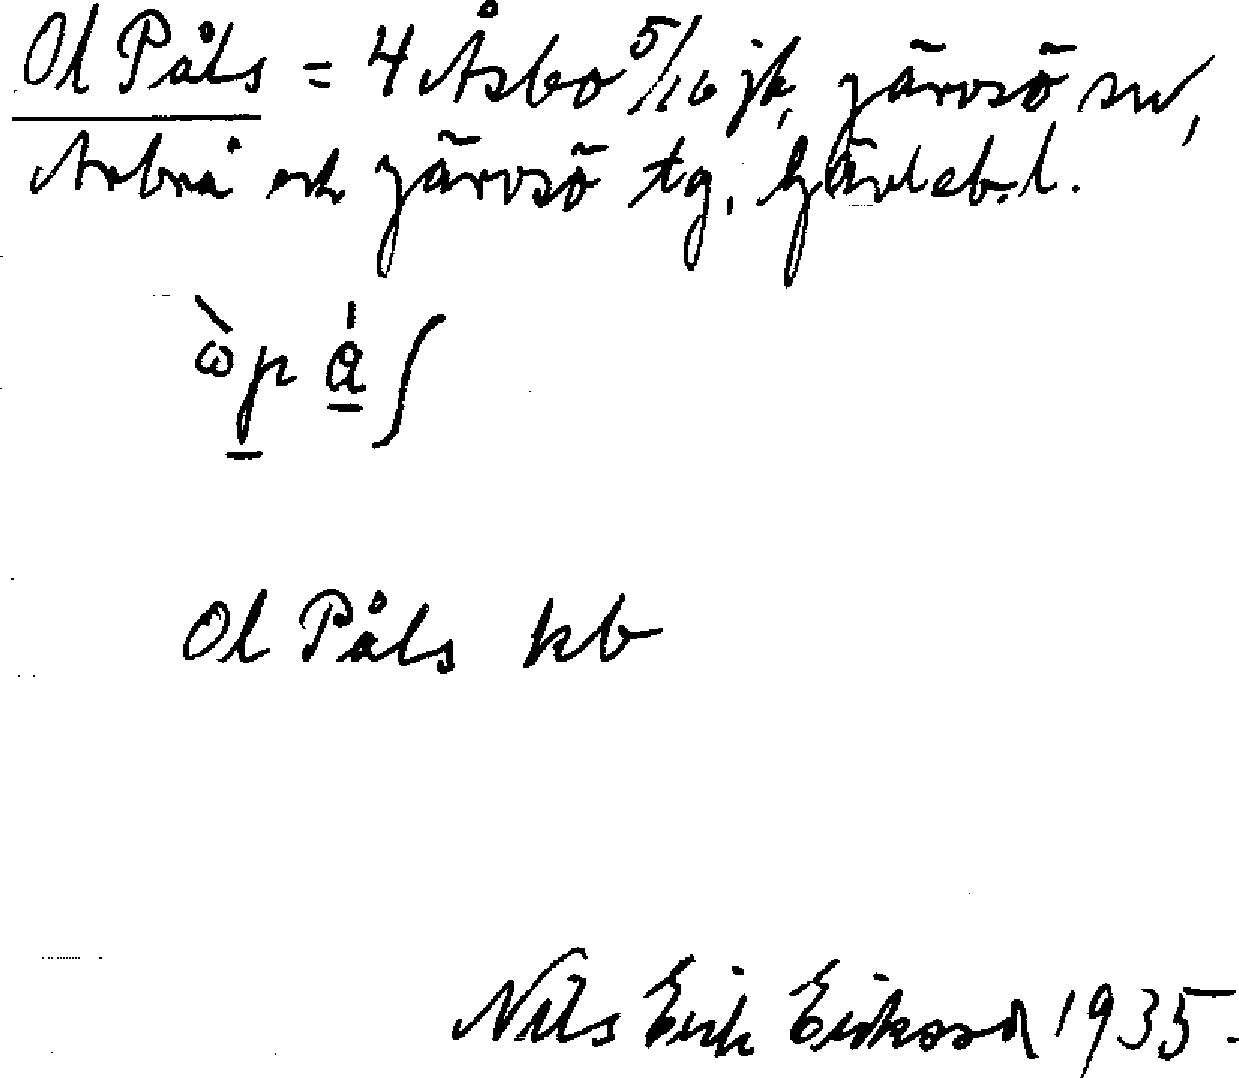 Ol Påls = 4 Åsbo 5/16 jk, Järvsö sn,
Arbrå och Järvsö tg. Gävleb. l.
Ol Påls kb
Nils Erik Eriksson 1935.